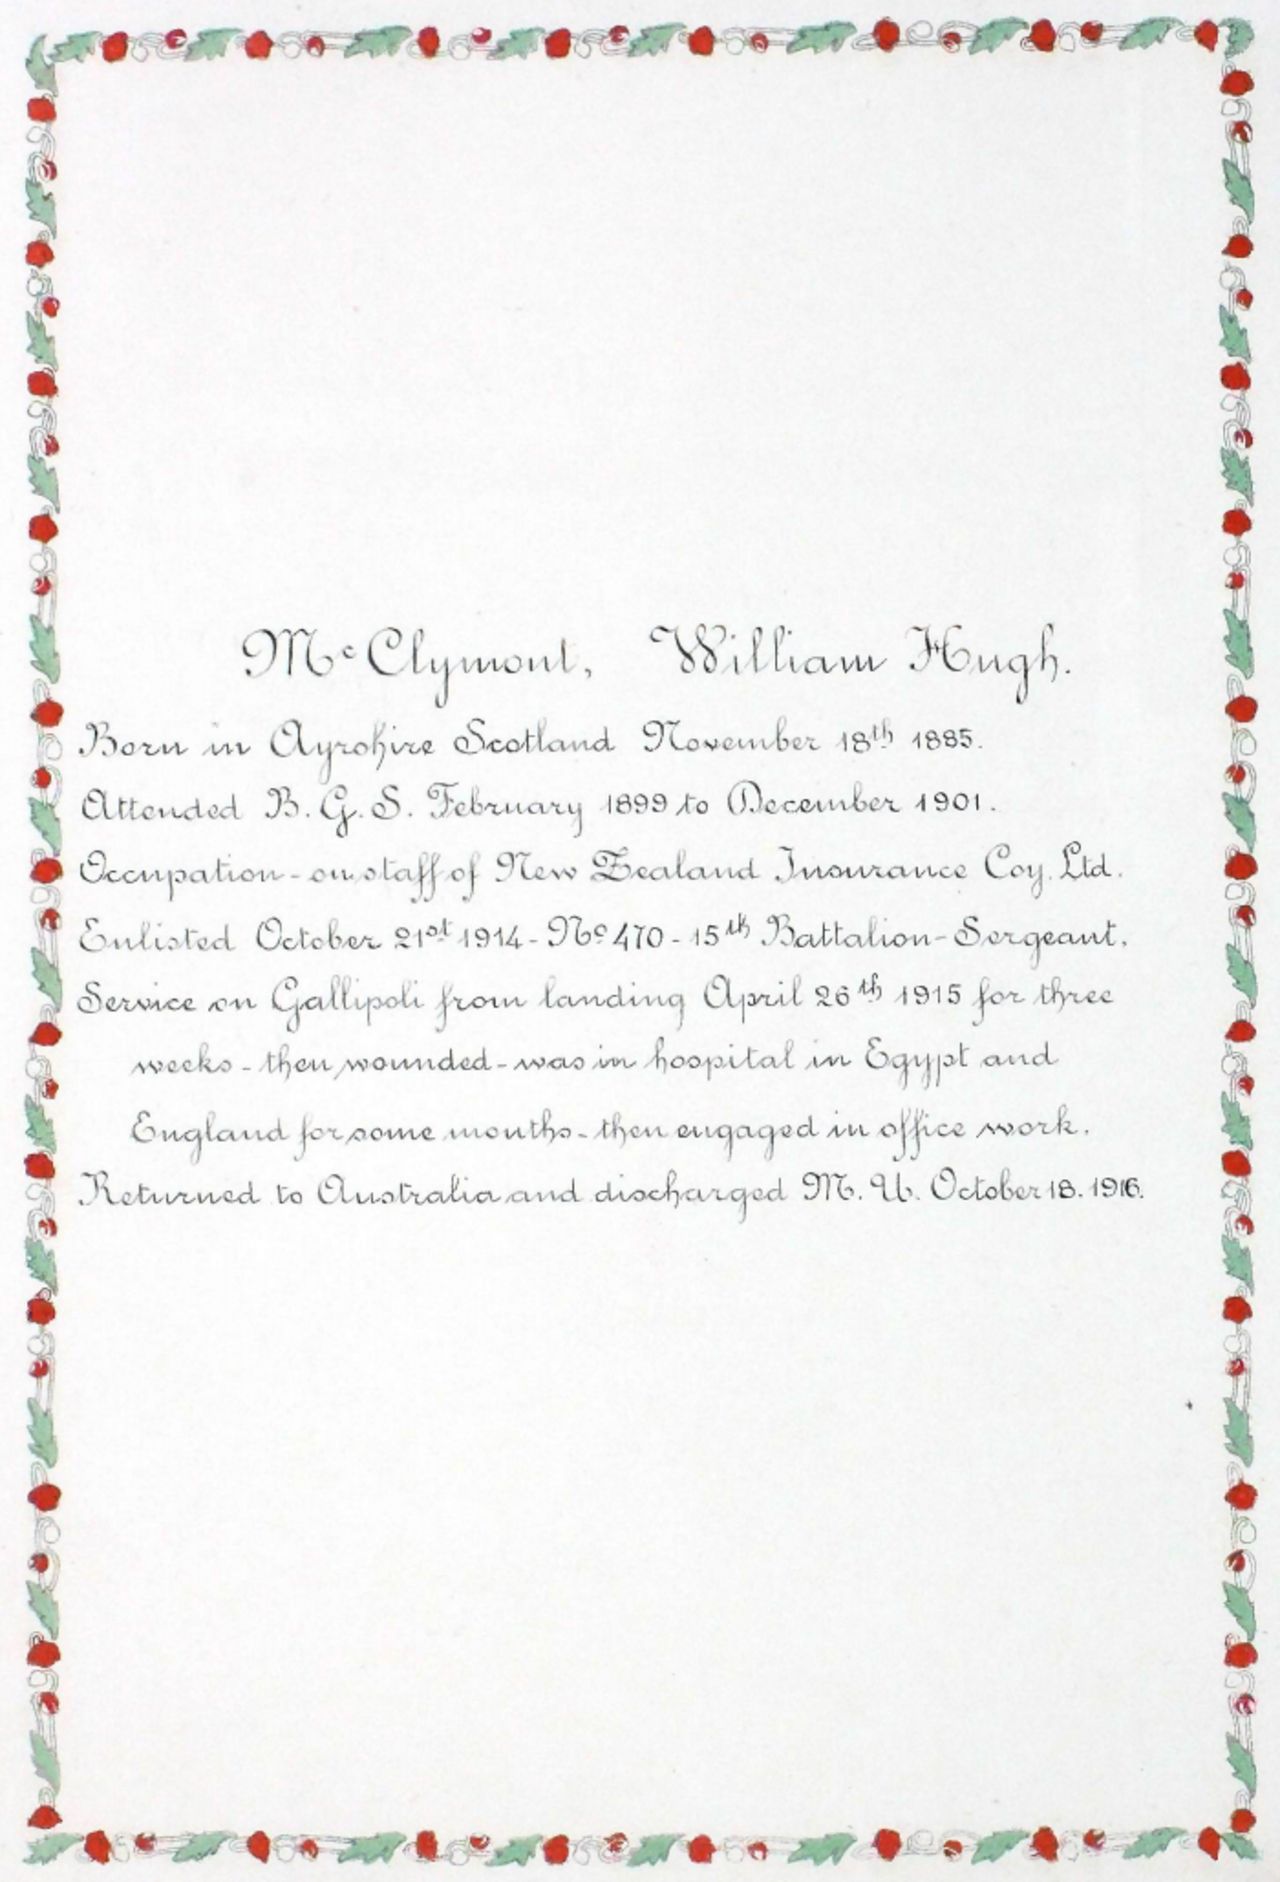 McClymont, William Hugh.
Born in Ayrshire Scotland November 18th 1885.
Attended B. G. S. February 1899 to December 1901.
Occupation - on staff of New Zealand Insurance Coy. Ltd.
Enlisted October 21st 1914 - No 470 - 15th Battalion - Sergeant.
Service on Gallipoli from landing April 26th 1915 for three
weeks - then wounded - was in hospital in Egypt and
England for some months - then engaged in office work.
Returned to Australia and discharged M. U. October 18. 1916.